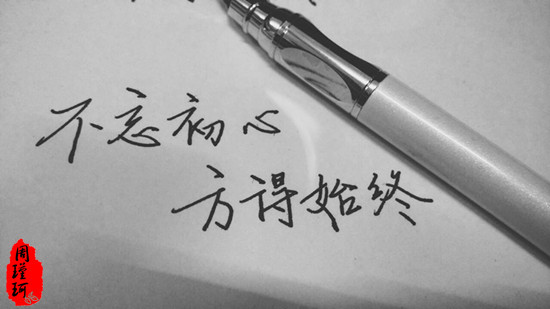 不忘初心
方得始终
周瑾珂